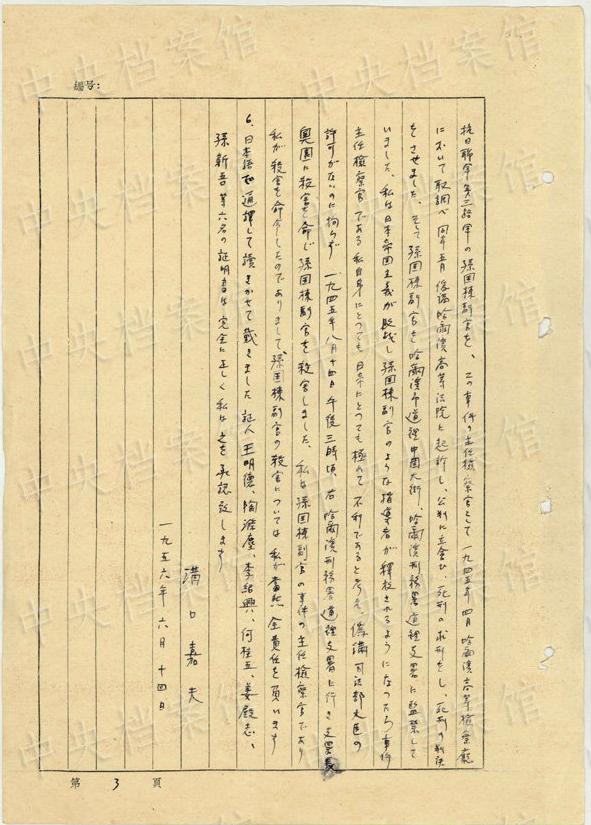 编号:
抗日聯軍第三路軍の孫国棟副官を、この事件の主任検察官として一九四五年四月哈爾濱高等検察廳
において取調べ同年五月偽満哈爾濱高等法院に起訴し、公判に立会ひ、死刑の求刑をし、死刑の判決
をさせました。そして孫国棟副官を哈爾濱市道裡中国大街、哈爾濱刑務署道裡支署に監禁して
いました。私は日本帝国主義が敗戦し孫国棟副官のような指導者が釈放されるようになったら事件
主任検察官である私自身にとつても日帝にとつても極めて不利であると考え、偽満司法部大臣の
許可がないのに拘らず一九四五年八月十四日午後三時頃、右哈爾濱刑務署道裡支署に行き支署長
奥園に殺害を命じ孫国棟副官を殺害しました。私は孫国棟副官の事件の主任検察官であり
私が殺害を命令したのでありまして孫国棟副官の殺害については私が当然全責任を負います
6、日本語で通訳して讀みきかせて戴きました証人王明德、陶 塵、李紹興、何桂五、姜殿志、
孫新吾等六名の証明書は完全に正しく私は之を承認致します
溝口嘉夫
一九五六年六月十四日
第 3 頁
中央档案馆